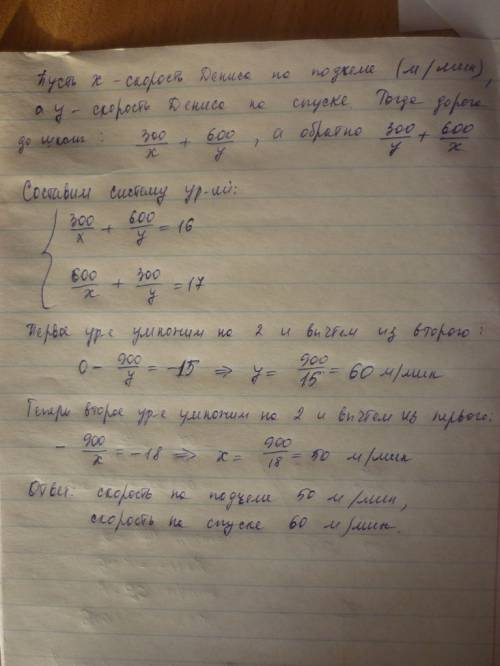 Пусть x - скорость Дениса на подъеме (м/мин),
а y - скорость Дениса на спуске. Тогда дорога
до школы: 300/x + 600/y, а обратно 300/y + 600/x
Составим систему ур-ий:
300/x + 600/y = 16
600/x + 300/y = 17
Первое ур-е умножим на 2 и вычтем из второго:
0 - 900/y = -15 ⇒ y = 900/15 = 60 м/мин
Теперь второе ур-е умножим на 2 и вычтем из первого:
- 900/x = -18 ⇒ x = 900/18 = 50 м/мин
Ответ: скорость на подъеме 50 м/мин,
скорость на спуске 60 м/мин.